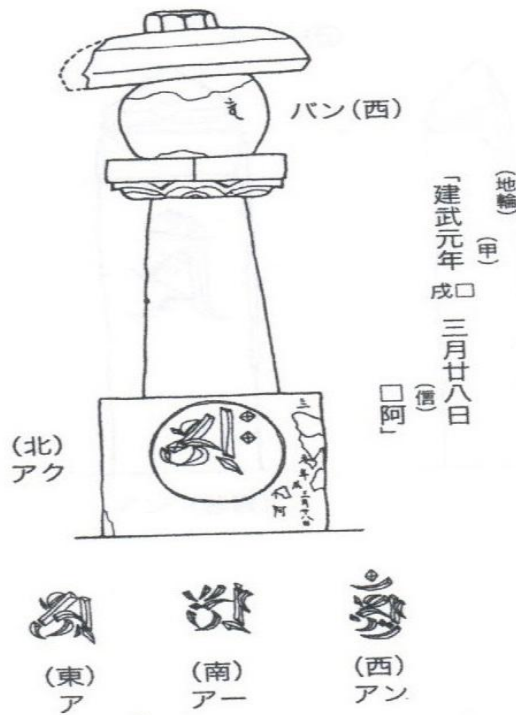 バン(西)
(地輪)
(甲)
「建武元年 □戌 三月廿八日
(信)
□阿」
(北)
アク
(東)
ア
(南)
アー
(西)
アン